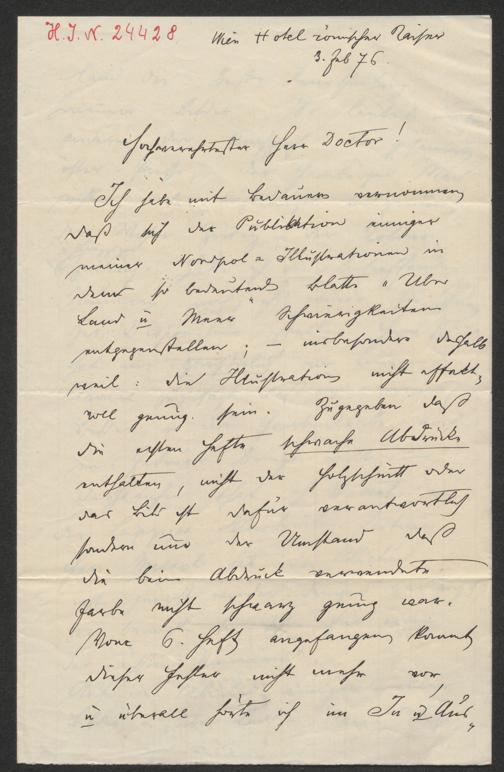 H. I. N. 24428
Wien Hotel römischer Kaiser
3. Feb 76.
Hochverehrtester Herr Doctor!
Ich habe mit Bedauern vernommen
daß sich der Publikation einiger
meiner Nordpol = Illustrationen in
dem so bedeutend Blatte „Über
Land u Meer" Schwierigkeiten
entgegenstellen; – insbesondere deshalb
weil: die Illustration nicht effekt=
voll genug. sein. Zugegeben daß
die ersten Hefte schwache Abdrücke
enthalten, nicht der Holzschnitt oder
das Bild ist dafür verantwortlich
sondern nur der Umstand daß
die beim Abdruck verwendete
Farbe nicht schwarz genug war.
Vom 6. Heft angefangen kommt
dieser Fehler nicht mehr vor,
u überall hörte ich im In u Aus„